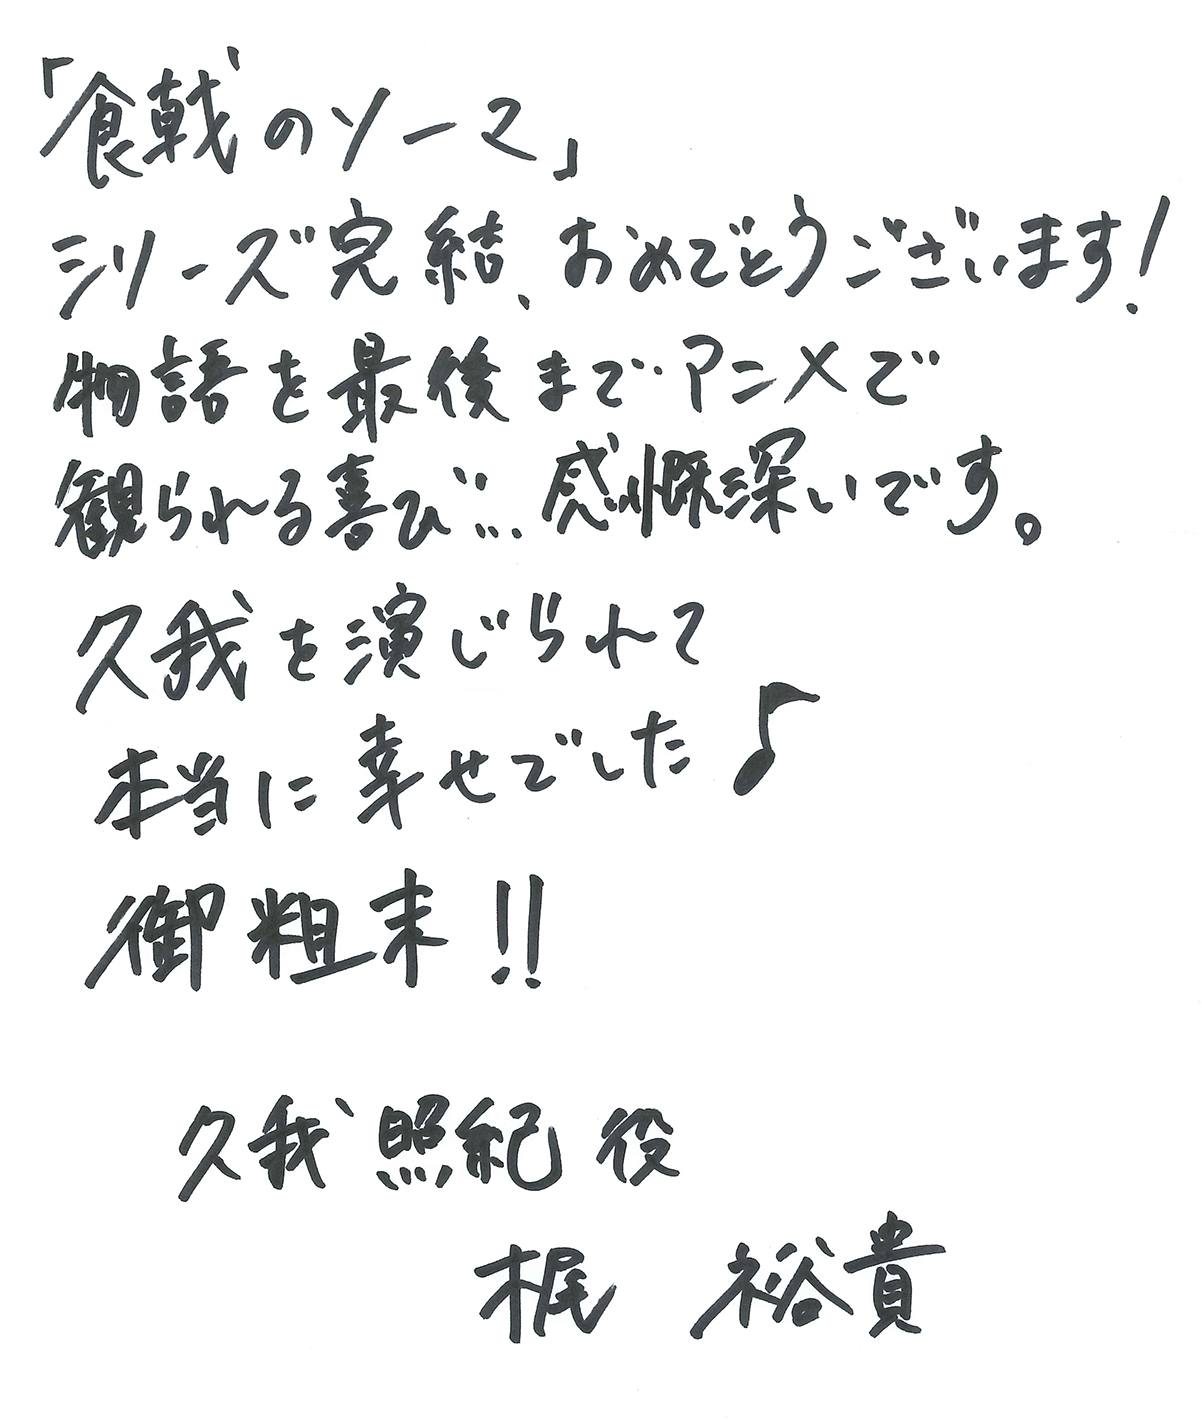 「食戟のソーマ」
シリーズ完結、おめでとうございます!
物語を最後までアニメで
観られる喜び…感慨深いです。
久我を演じられて
本当に幸せでした♪
御粗末!!
久我照紀役
梶 裕貴